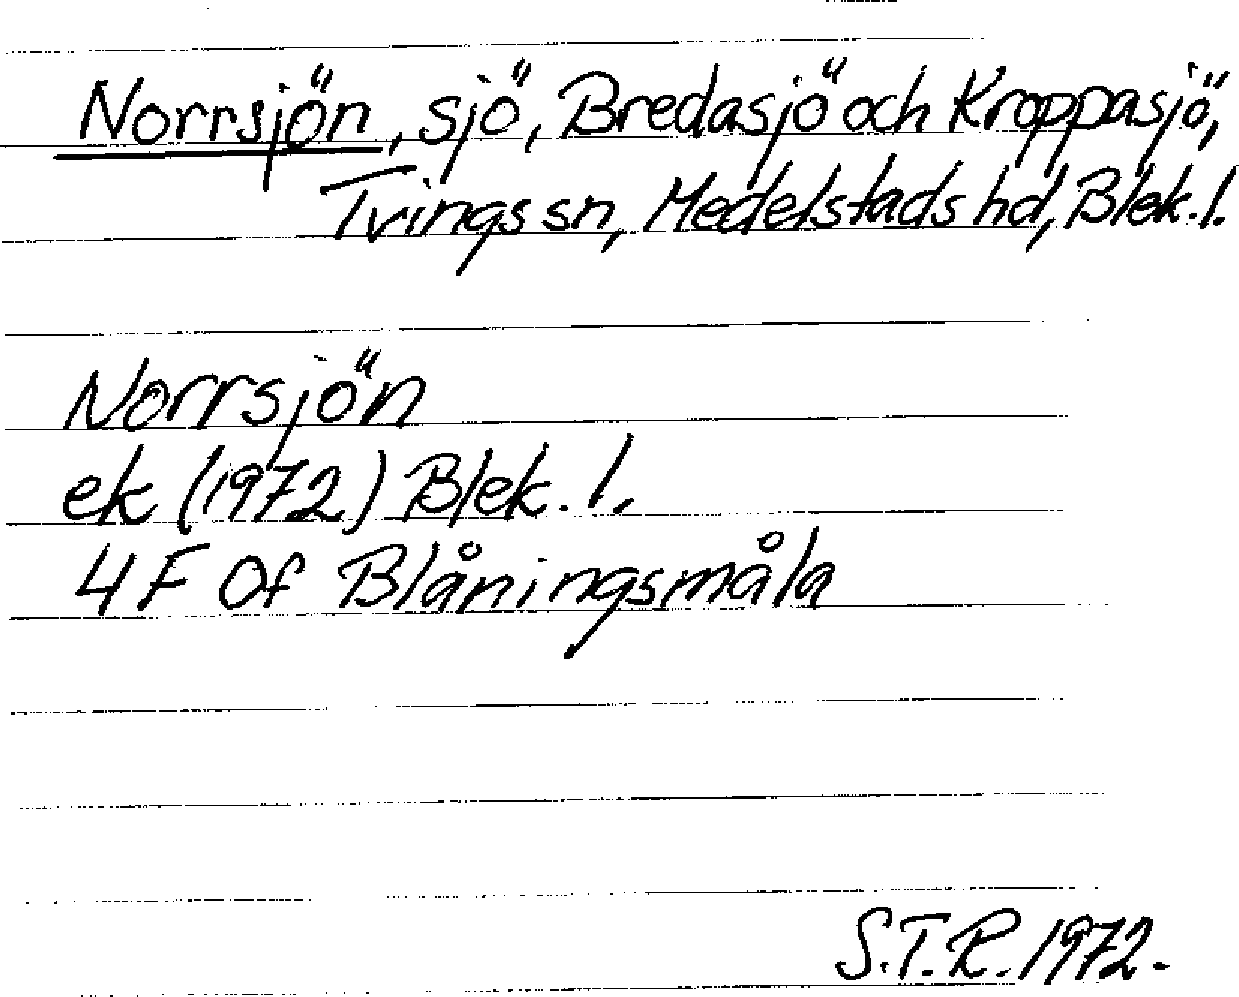 Norrsjön, sjö, Bredasjö och Kroppasjö,
Tvings sn, Medelstads hd, Blek. l.
Norrsjön
ek (1972) Blek. l.
4F 0f Blåningsmåla
S.T.R. 1972.